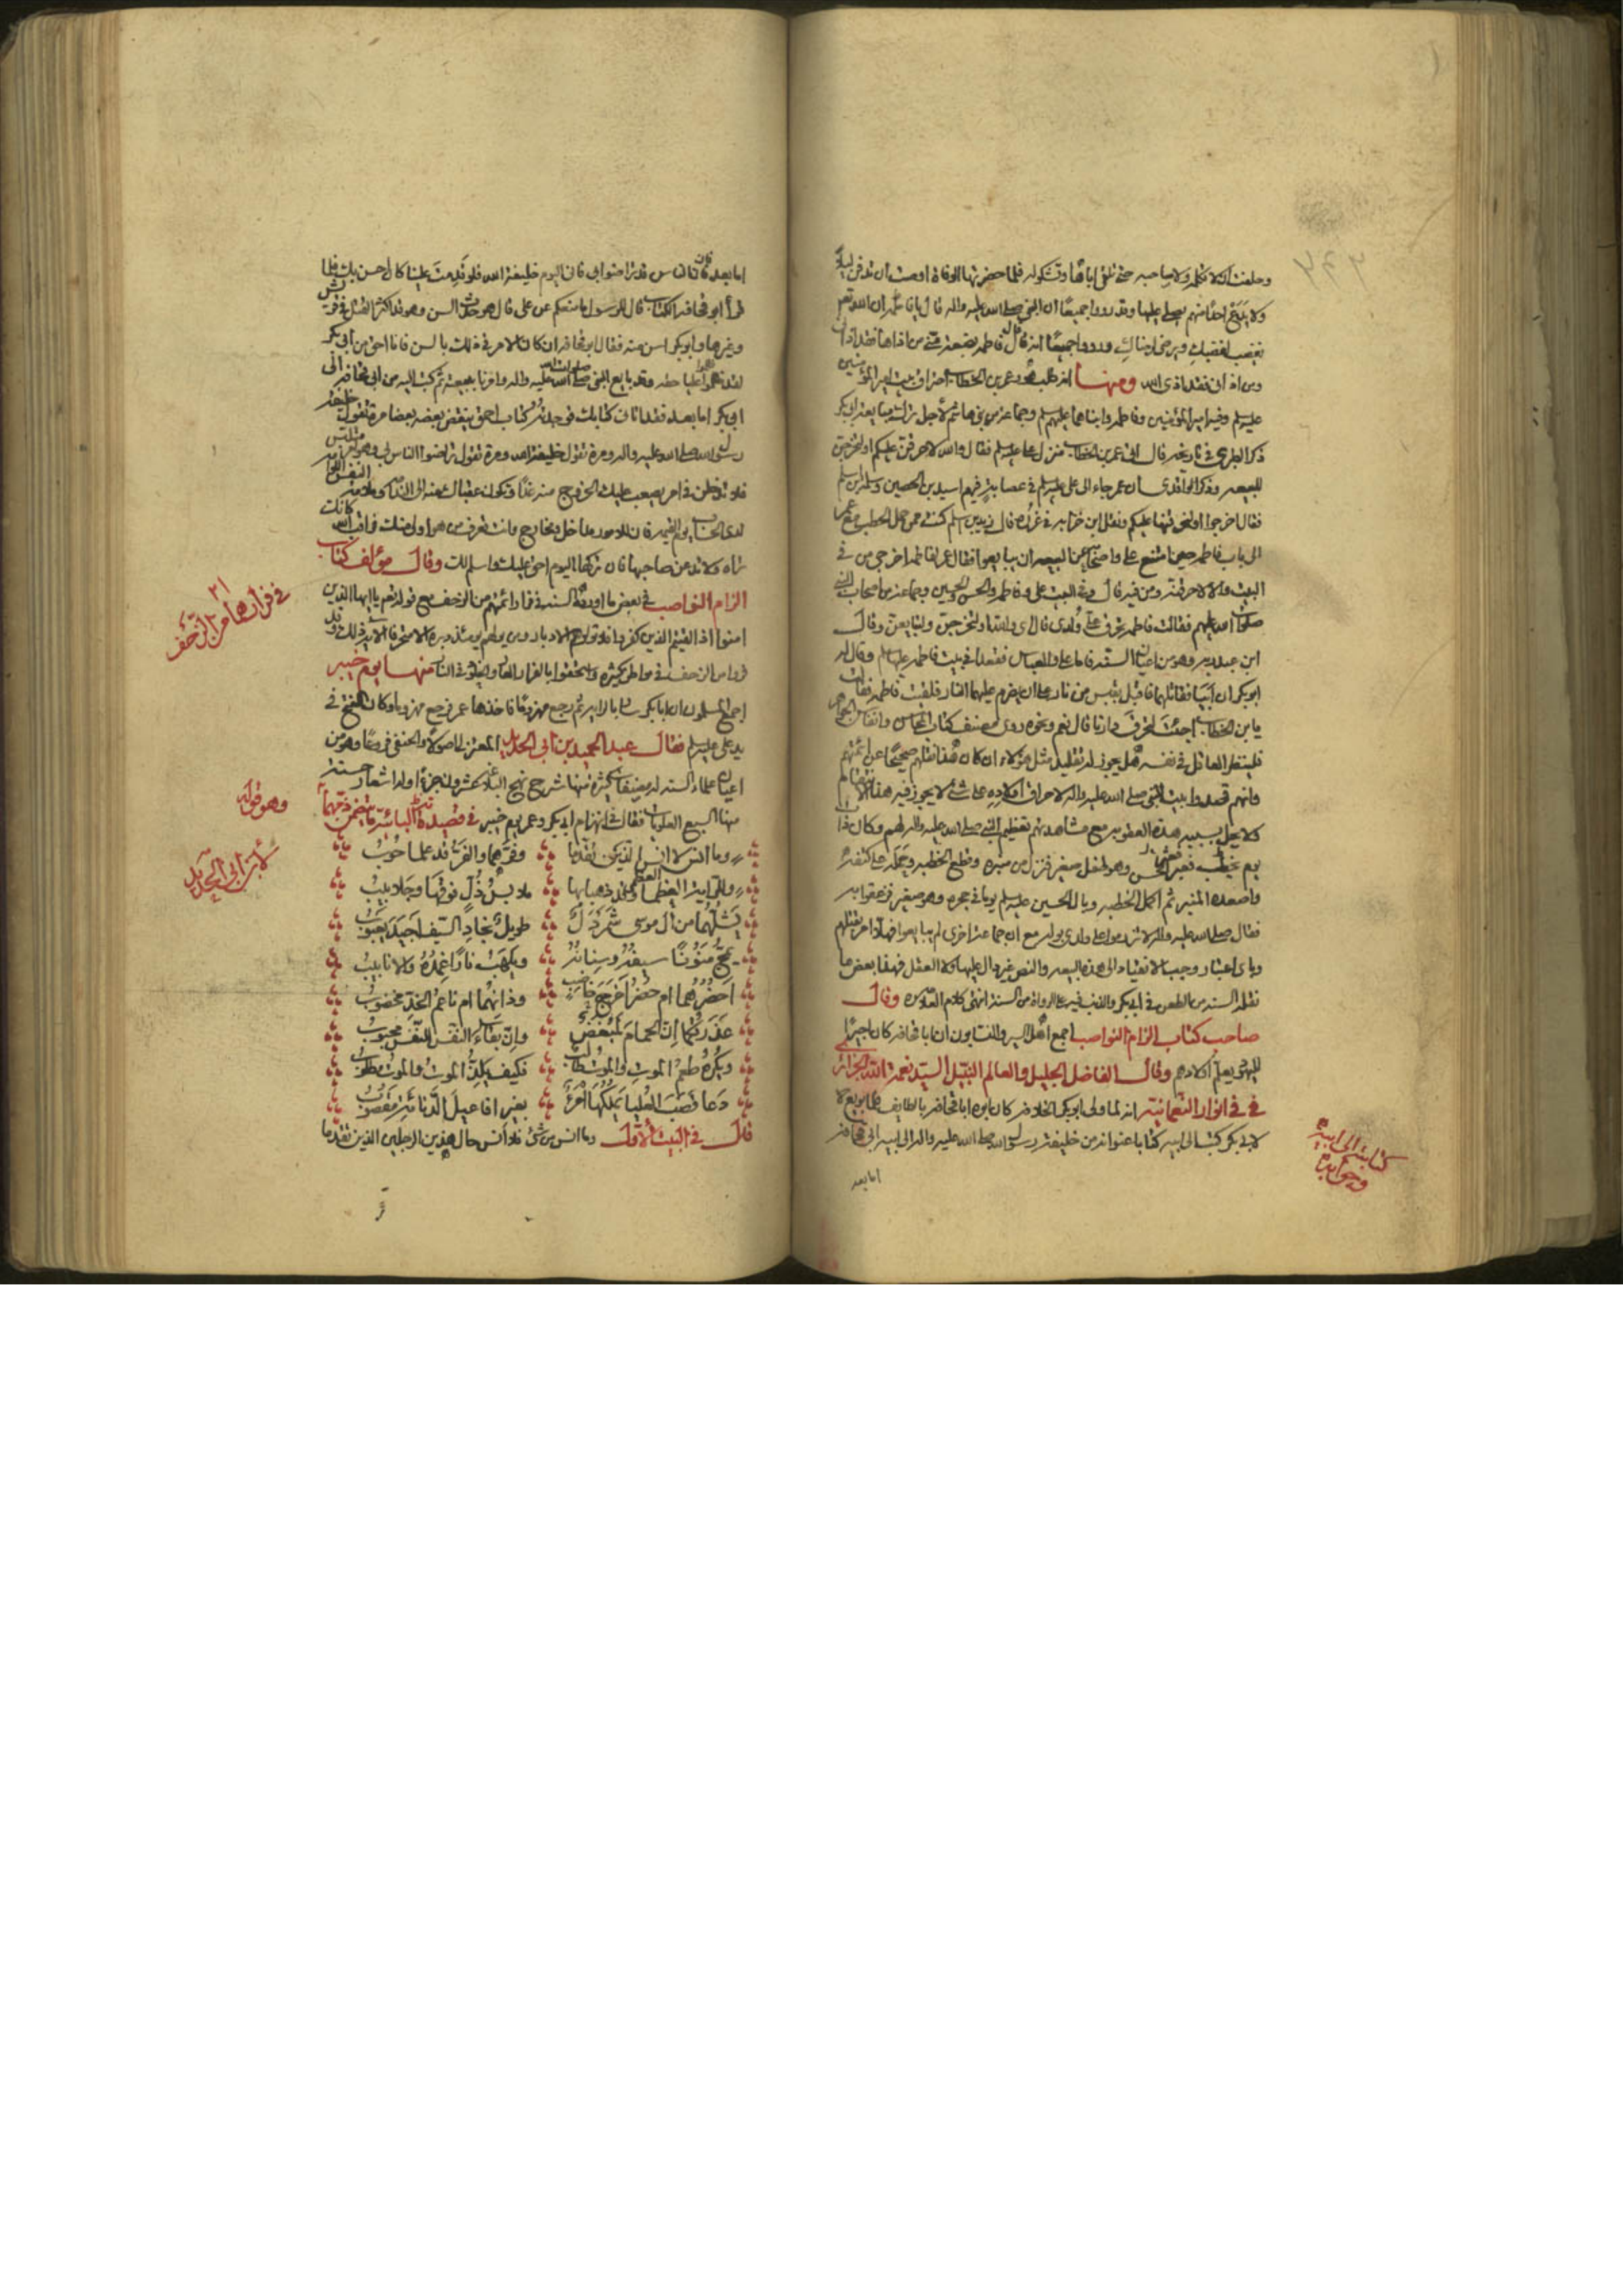 وحلفت ان لا تكلمه ولا صاحبه حتى تلقى اباها وتشكو اليه فلما حضرتها الوفاة اوصت ان تدفن ليلا
ولا يدع احدا منهم يصلي عليها وقد رووا جميعا ان النبي صلى الله عليه واله قال يا فاطمة ان الله تعالى
يغضب لغضبك ويرضى لرضاك ورووا جميعا انه قال فاطمة بضعة مني من اذاها فقد اذاني
ومن اذاني فقد اذى الله ومنها انه طلب هو وعمر بن الخطاب احراق بيت امير المؤمنين
عليه السلم وفيه امير المؤمنين وفاطمة وابناهما عليهم السلم وجماعة من بني هاشم لاجل ترك مبايعة ابي بكر
ذكر الطبري في تاريخه قال اتى عمر بن الخطاب منزل علي عليه السلم فقال والله لاحرقن عليكم او لتخرجن
للبيعه وذكر الواقدي ان عمر جاء الى علي عليه السلم في عصابة فيهم اسيد بن الحصين وسلمة بن اسلم
فقال اخرجوا او لنحرقنها عليكم ونقل ابن خزابه في غرره قال زيد بن اسلم كنت ممن حمل الحطب مع عمر
الى باب فاطمة حين امتنع علي واصحابه عن البيعه ان يبايعوا فقال عمر لفاطمة اخرجي من في
البيت والا احرقته ومن فيه قال وفي البيت علي وفاطمة والحسن والحسين وجماعة من اصحاب النبي
صلوات الله عليهم فقالت فاطمة تحرق علي ولدي قال اي والله او ليخرجن وليبايعن وقال
ابن عبد ربه وهو من اعيان السنة فاما علي والعباس فقعدا في بيت فاطمة عليها السلم وقال له
ابو بكر ان ابيا فقاتلهما فاقبل بقبس من نار على ان يضرم عليهما النار فلقيته فاطمة فقالت
يا بن الخطاب اجئت لتحرق دارنا قال نعم ونحوه روى مصنف كتاب المحاسن وانفاس الجواهر
فلينظر العاقل في نفسه هل يجوز له تقليد مثل هؤلاء ان كان هذا نقلهم صحيحا عن ائمتهم
وانهم قصدوا بيت النبي صلى الله عليه واله لاحراق اولاده على شئ لا يجوز فيه هذا الانتقام
ولا يحل بسببه هذه العقوبة مع مشاهدتهم تعظيم النبي صلى الله عليه واله لهم وكان ذات
يوم يخطب فعبر الحسن وهو طفل صغير فنزل من منبره وقطع الخطبه وحمله على كتفه
واصعده المنبر ثم اكمل الخطبه وبال الحسين عليه السلم يوما في حجره وهو صغير فزعقوا به
فقال صلى الله عليه واله لا تزرموا على ولدي بوله مع ان جماعة اخرى لم يبايعوا فهلا امر بقتلهم
وباي اعتبار وجب الانقياد الى هذه البيعه والنص غير دال عليها ولا العقل فهذا بعض ما
نقله السنه من الطعن في ابي بكر والذنب فيه على الرواة من السنة انتهى كلام العلامه وقال
صاحب كتاب الزام النواصب اجمع اهل السير والنسابون ان ابا قحافه كان اجيرا
لليهود يعلم اولادهم وقال الفاضل الجليل والعالم النبيل السيد نعمة الله الجزائري
في انوار النعمانية انه لما ولي ابو بكر الخلافه كان ابوه ابا قحافه بالطايف فلما بويع
لابي بكر كتب الى ابيه كتابا عنوانه من خليفة رسول الله صلى الله عليه واله الى ابيه ابي قحافه
كتابه الى ابيه
وجوابه
اما بعد
اما بعد فان الناس قد تراضوا بي فاني اليوم خليفة الله فلو قدمت علينا كان احسن بك فلما
قرأ ابو قحافه الكتاب قال للرسول ما منعكم عن علي قال هو حدث السن وهو قد اكثر القتل في قريش
وغيرها وابو بكر اسن منه فقال ابو قحافه ان كان الامر في ذلك بالسن فانا احق من ابي بكر
لقد ظلموا عليا حقه وقد بايع النبي صلوات الله عليه واله وامرنا ببيعته ثم كتب اليه من ابي قحافه الى
ابي بكر اما بعد فقد اتاني كتابك فوجدته كتاب احمق ينقض بعضه بعضا مرة تقول خليفة
رسول الله صلى الله عليه واله ومرة تقول خليفة الله ومرة تقول تراضوا الناس بي وهو امر ملتبس
فلا تدخلن في امر يصعب عليك الخروج منه غدا ويكون عقباك منه الى الندامه وملامة النفس اللوامة
لدى الحساب يوم القيمه فان للامور مداخل ومخارج وانت تعرف من هو اولى منك فراقب الله كانك
تراه ولا تدعن صاحبها فان تركها اليوم احق عليك واسلم لك وقال مؤلف كتاب
الزام النواصب في بعض ما اورده السنه في فرار ائمتهم من الزحف مع قوله تعالى يا ايها الذين
امنوا اذا لقيتم الذين كفروا فلا تولوهم الادبار ومن يولهم يومئذ دبره الا متحرفا الاية ذلك وقد
فروا من الزحف في مواطن كثيره واستحقوا بالفرار العار والخلود في النار منها يوم خيبر
اجمع المسلمون ان ابا بكر سار بالراية ثم رجع مهزوما فاخذها عمر فرجع مهزوما وكان الفتح في
يد علي عليه السلم فقال عبد الحميد بن ابي الحديد المعتزلي اصولا والحنفي فروعا وهو من
اعيان علماء السنه له مصنفات كثيرة منها شرح نهج البلاغه عشرون جزءا وله اشعار حسنة
منها السبع العلويات فقال في انهزام ابي بكر وعمر يوم خيبر في قصيدة البائية ما يتضمن ذمهما
وما انس لا انس الذين تقدما وفرهما والفر قد علما حوب
وللراية العظمى وقد ذهبا بها ملابس ذل فوقها وجلابيب
يشلهما من ال موسى شمردل طويل نجاد السيف اجيد يعبوب
يمج منونا سيفه وسنانه ويلهب نارا غمده والانابيب
احضرهما ام حضر اخرج خاضب وذان هما ام ناعم الخد مخضوب
عذرتكما ان الحمام لمبغض وان بقاء النفس للنفس محبوب
ويكره طعم الموت والموت طالب فكيف يلذ الموت والموت مطلوب
دعا قصب العليا يملكها امرؤ بغير افاعيل الدنائة مقضوب
قال في البيت الاول وما انس من شئ فلا انس حال هذين الرجلين الذين تقدما
في فرارهما من الزحف
وهو قوله
لابن ابي الحديد